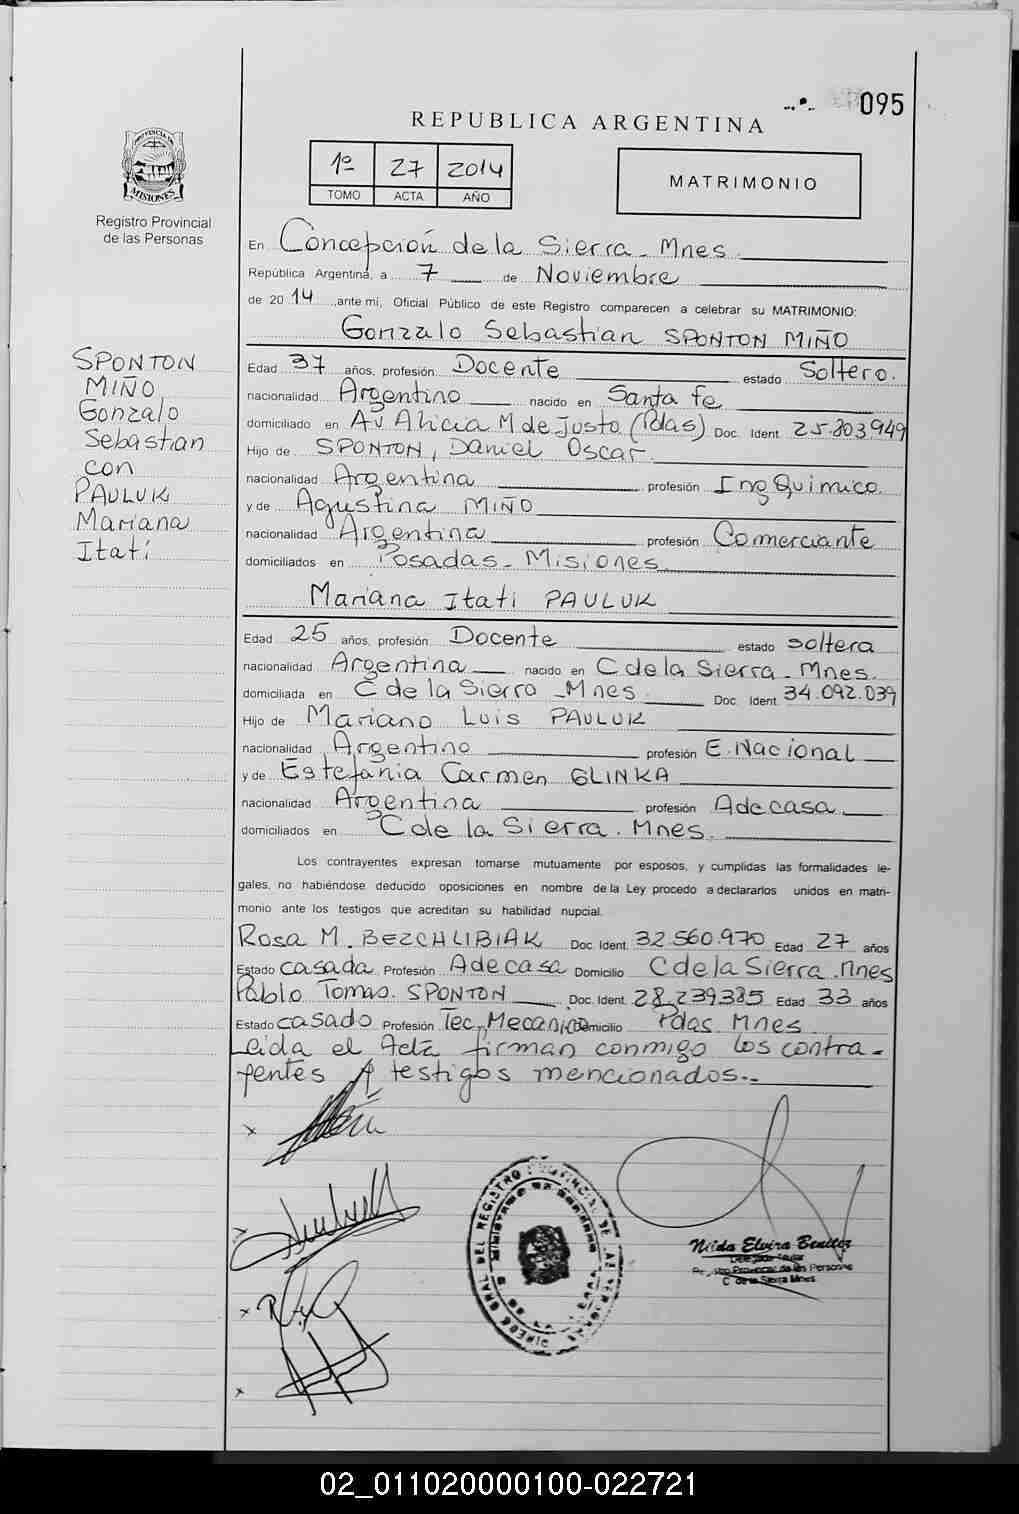 095
REPUBLICA ARGENTINA
PROVINCIA DE
MISIONES
Registro Provincial
de las Personas
1º 27 2014
TOMO ACTA AÑO
MATRIMONIO
En Concepción de la Sierra - Mnes.
República Argentina, a 7 de Noviembre
de 2014 ,ante mi, Oficial Público de este Registro comparecen a celebrar su MATRIMONIO:
Gonzalo Sebastian SPONTON MIÑO
SPONTON
MIÑO
Gonzalo
Sebastian
con
PAULUK
Mariana
Itatí
Edad 37 años, profesión Docente estado Soltero.
nacionalidad Argentino nacido en Santa fe
domiciliado en Av Alicia M de Justo (Pdas) Doc. Ident. 25.803.949
Hijo de SPONTON, Daniel Oscar.
nacionalidad Argentina profesión Ing Quimico.
y de Agustina MIÑO
nacionalidad Argentina profesión Comerciante
domiciliados en Posadas - Misiones
Mariana Itati PAULUK
Edad 25 años, profesión Docente estado soltera
nacionalidad Argentina nacido en C de la Sierra - Mnes.
domiciliada en C de la Sierra - Mnes. Doc. Ident. 34.092.039
Hijo de Mariano Luis PAULUK
nacionalidad Argentino profesión E. Nacional
y de Estefania Carmen GLINKA
nacionalidad Argentina profesión Adecasa
domiciliados en C de la Sierra. Mnes.
Los contrayentes expresan tomarse mutuamente por esposos, y cumplidas las formalidades le-
gales, no habiéndose deducido oposiciones en nombre de la Ley procedo a declararlos unidos en matri-
monio ante los testigos que acreditan su habilidad nupcial.
Rosa M. BEZCHLIBIAK Doc. Ident. 32.560.970 Edad 27 años
Estado casada Profesión Adecasa Domicilio C de la Sierra. Mnes
Pablo Tomas. SPONTON Doc. Ident. 28.239.385 Edad 33 años
Estado casado Profesión Tec. Mecanico Domicilio Pdas Mnes
Leida el Acta firman conmigo los contra-
yentes y testigos mencionados.-
Nilda Elvira Benitez
Delegada Titular
Registro Provincial de las Personas
C. de la Sierra Mnes
02_011020000100-022721